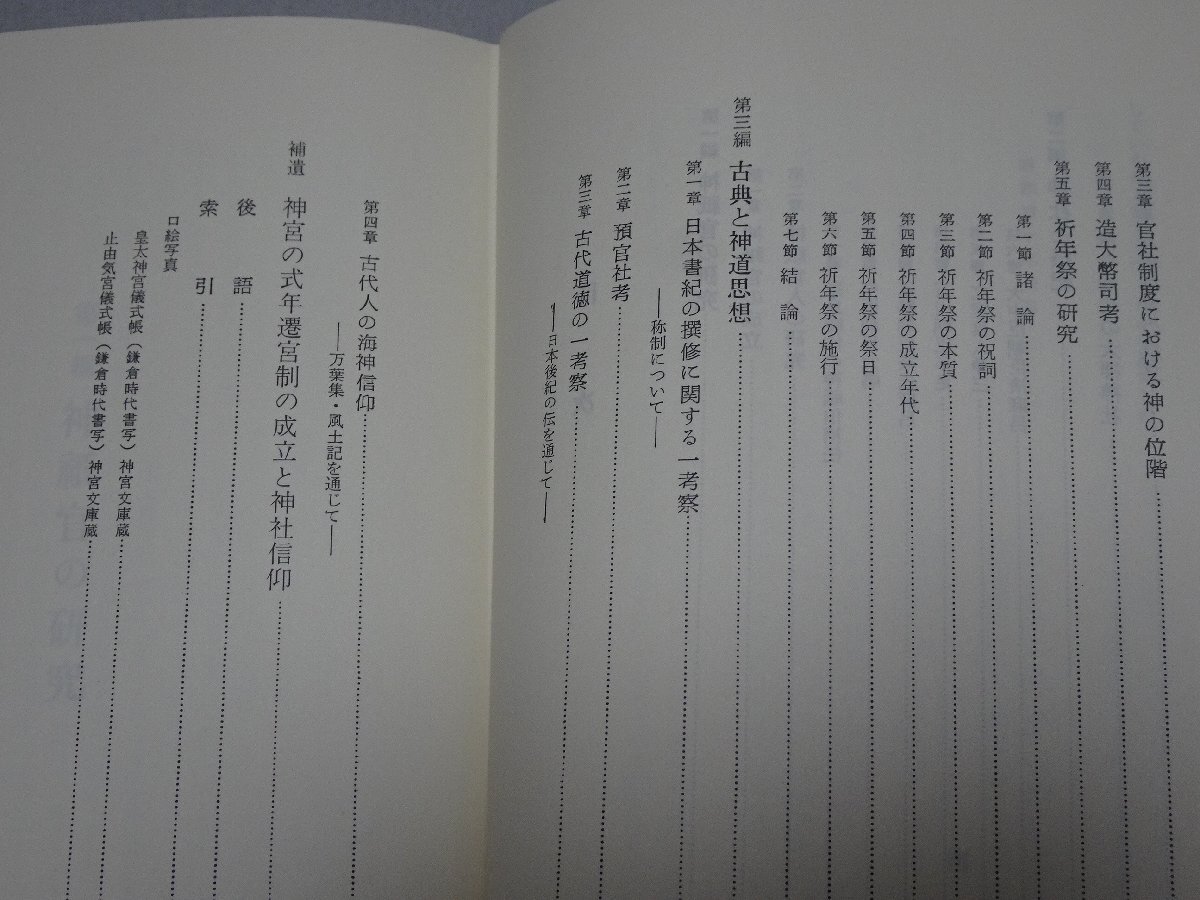 第三章 官社制度における神の位階
第四章 造大幣司考
第五章 祈年祭の研究
第一節 諸論
第二節 祈年祭の祝詞
第三節 祈年祭の本質
第四節 祈年祭の成立年代
第五節 祈年祭の祭日
第六節 祈年祭の施行
第七節 結論
第三編 古典と神道思想
第一章 日本書紀の撰修に関する一考察
――称制について――
第二章 預宮社考
第三章 古代道徳の一考察
――日本後紀の伝を通じて――
第四章 古代人の海神信仰
――万葉集・風土記を通じて――
補遺 神宮の式年遷宮制の成立と神社信仰
後語
索引
口絵写真
皇太神宮儀式帳（鎌倉時代書写）神宮文庫蔵
止由気宮儀式帳（鎌倉時代書写）神宮文庫蔵